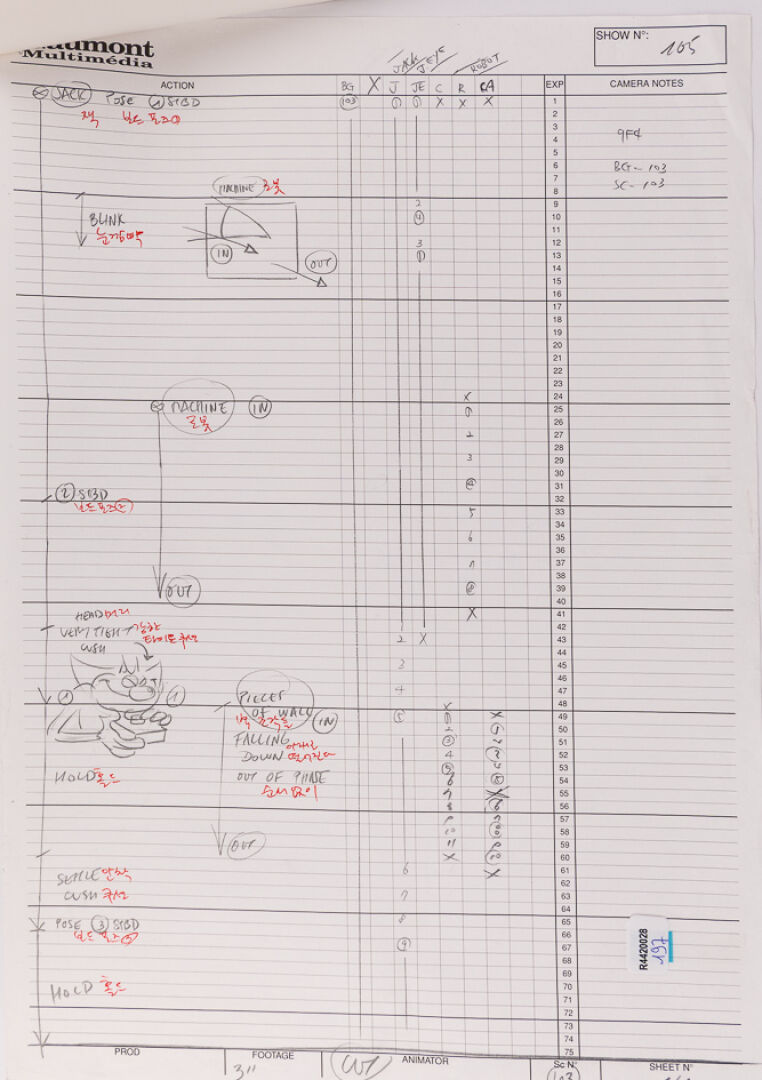 aumont
Multimédia
SHOW N°: 105
JACK
J EYE
ROBOT
ACTION
BG X J JE C R CA
EXP
CAMERA NOTES
JACK POSE 1 STBD
103 1 1 X X X
1
잭 보드 포즈①
2
3
9F4
4
5
BG- 103
6
SC- 103
7
8
MACHINE 로봇
2
9
BLINK
4
10
눈깜빡
11
IN
3
12
OUT
1
13
14
15
16
17
18
19
20
21
22
23
X
24
MACHINE IN
1
25
로봇
26
2
27
28
3
29
30
4
31
2 STBD
32
보드포즈②
5
33
34
6
35
36
7
37
38
OUT
8
39
40
HEAD 머리
X
41
VERY TIGHT 강한
42
CUSH 타이트쿠션
2 X
43
44
3
45
46
1 1
4
47
PIECES
X
48
OF WALL IN
5 1 X
49
벽 조각들
2
50
FALLING 아래로
3
51
DOWN 떨어진다
4
52
5
53
HOLD 홀드
OUT OF PHASE
6
54
순서없이
7
55
8
56
9
57
OUT
10
58
11
59
X
60
SETTLE 안착
6 X
61
62
CUSH 쿠션
7
63
64
POSE 3 STBD
8
65
보드 포즈③
66
9
67
68
69
HOLD 홀드
70
71
72
73
74
75
R4420028
197
PROD
FOOTAGE
3"
CUT
ANIMATOR
Sc N°
103
SHEET N°